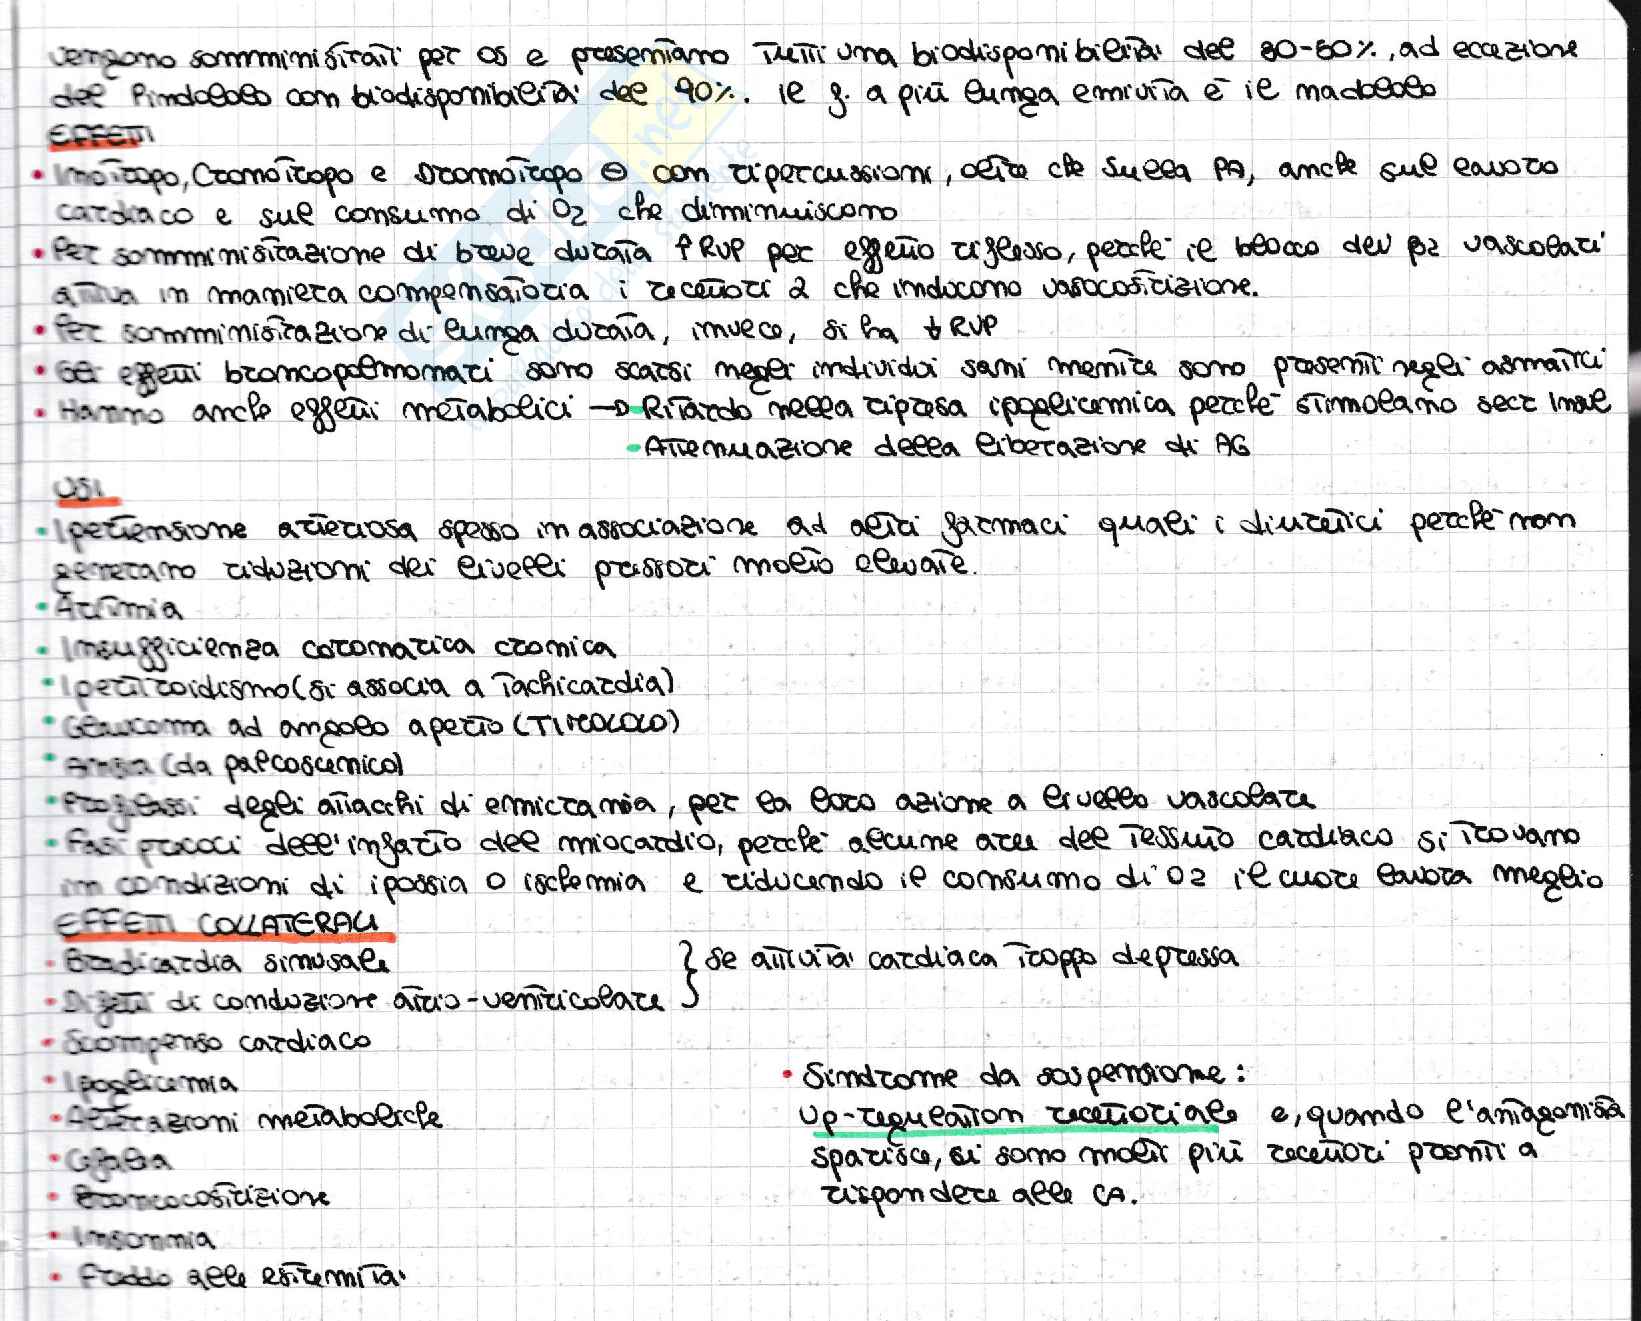 vengono somministrati per os e presentano tutti una biodisponibilità del 30-60%, ad eccezione
del Pindololo con biodisponibilità del 90%. il f. a più lunga emivita è il nadololo
EFFETTI
• Inotropo, Cronotropo e Dromotropo ⊖ con ripercussioni, oltre che sulla PA, anche sul lavoro
cardiaco e sul consumo di O2 che diminuiscono
• Per somministrazione di breve durata ↑RVP per effetto riflesso, perché il blocco dei β2 vascolari
attiva in maniera compensatoria i recettori α che inducono vasocostrizione.
• Per somministrazione di lunga durata, invece, si ha ↓RVP
• Gli effetti broncopolmonari sono scarsi negli individui sani mentre sono presenti negli asmatici
• Hanno anche effetti metabolici → - Ritardo nella ripresa ipoglicemica perché stimolano secr insul
- Attenuazione della liberazione di AG
USI
• Ipertensione arteriosa spesso in associazione ad altri farmaci quali i diuretici perché non
generano riduzioni dei livelli pressori molto elevate.
• Aritmia
• Insufficienza coronarica cronica
• Ipertiroidismo (si associa a tachicardia)
• Glaucoma ad angolo aperto (TIMOLOLO)
• Ansia (da palcoscenico)
• Profilassi degli attacchi di emicrania, per la loro azione a livello vascolare
• Fasi precoci dell'infarto del miocardio, perché alcune aree del tessuto cardiaco si trovano
in condizioni di ipossia o ischemia e riducendo il consumo di O2 il cuore lavora meglio
EFFETTI COLLATERALI
• Bradicardia sinusale } se attività cardiaca troppo depressa
• Difetti di conduzione atrio-ventricolare
• Scompenso cardiaco
• Ipoglicemia
• Alterazioni metaboliche
• Cefalea
• Broncocostrizione
• Insonnia
• Freddo alle estremità
• Sindrome da sospensione:
Up-regulation recettoriale e, quando l'antagonista
sparisce, ci sono molti più recettori pronti a
rispondere alle CA.